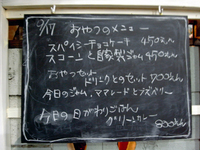 9/17 おやつのメニュー
スパイシーチョコケーキ 450えん
スコーンと自家製ジャム 450えん
おやつセット
ドリンクとのセット 700えん
今日のジャム、ママレードとブルーベリー
今日の日がわりごはん
グリーンカレー
800えん